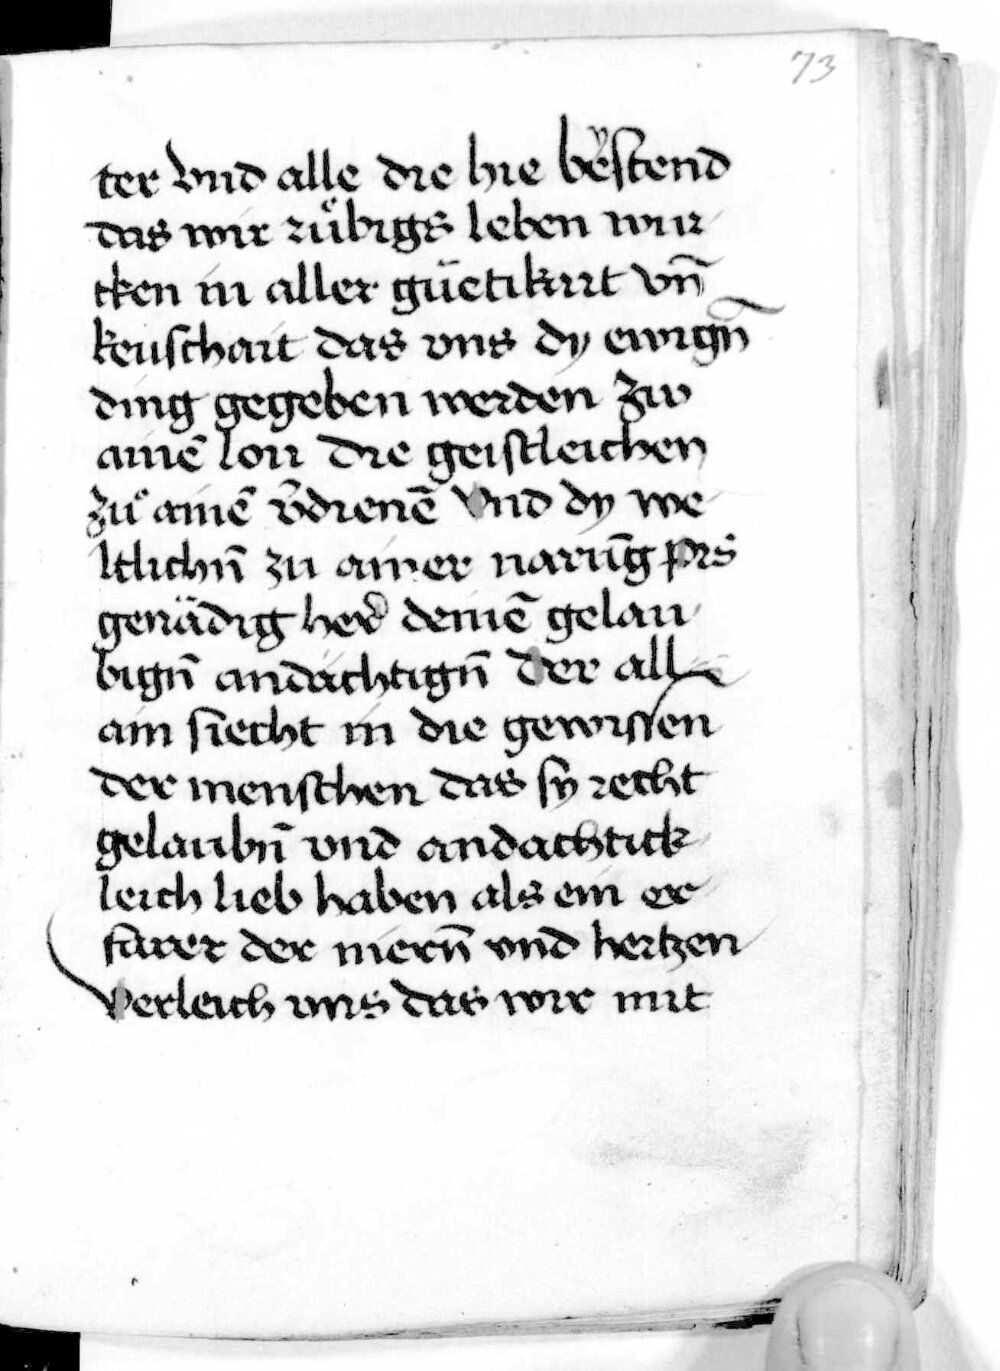 73
ter Vnd alle die hie beÿstend
das wir růbigs leben wur
cken in aller güetikait vn̄
keuschait das vns dy ewign̄
ding gegeben werden zw
ainē lon die geistleichen
zů ainē v̄dienē Vnd dy we
ltlichn̄ zu ainer narūg
genädig her deinē gelau
bign̄ andächtign̄ der alle
ain siecht in die gewissen
der menschen das sÿ recht
gelaubn̄ vnd andachtick
leich lieb haben als ein er
farer der niern̄ vnd hertzen
Verleich vns das wir mit